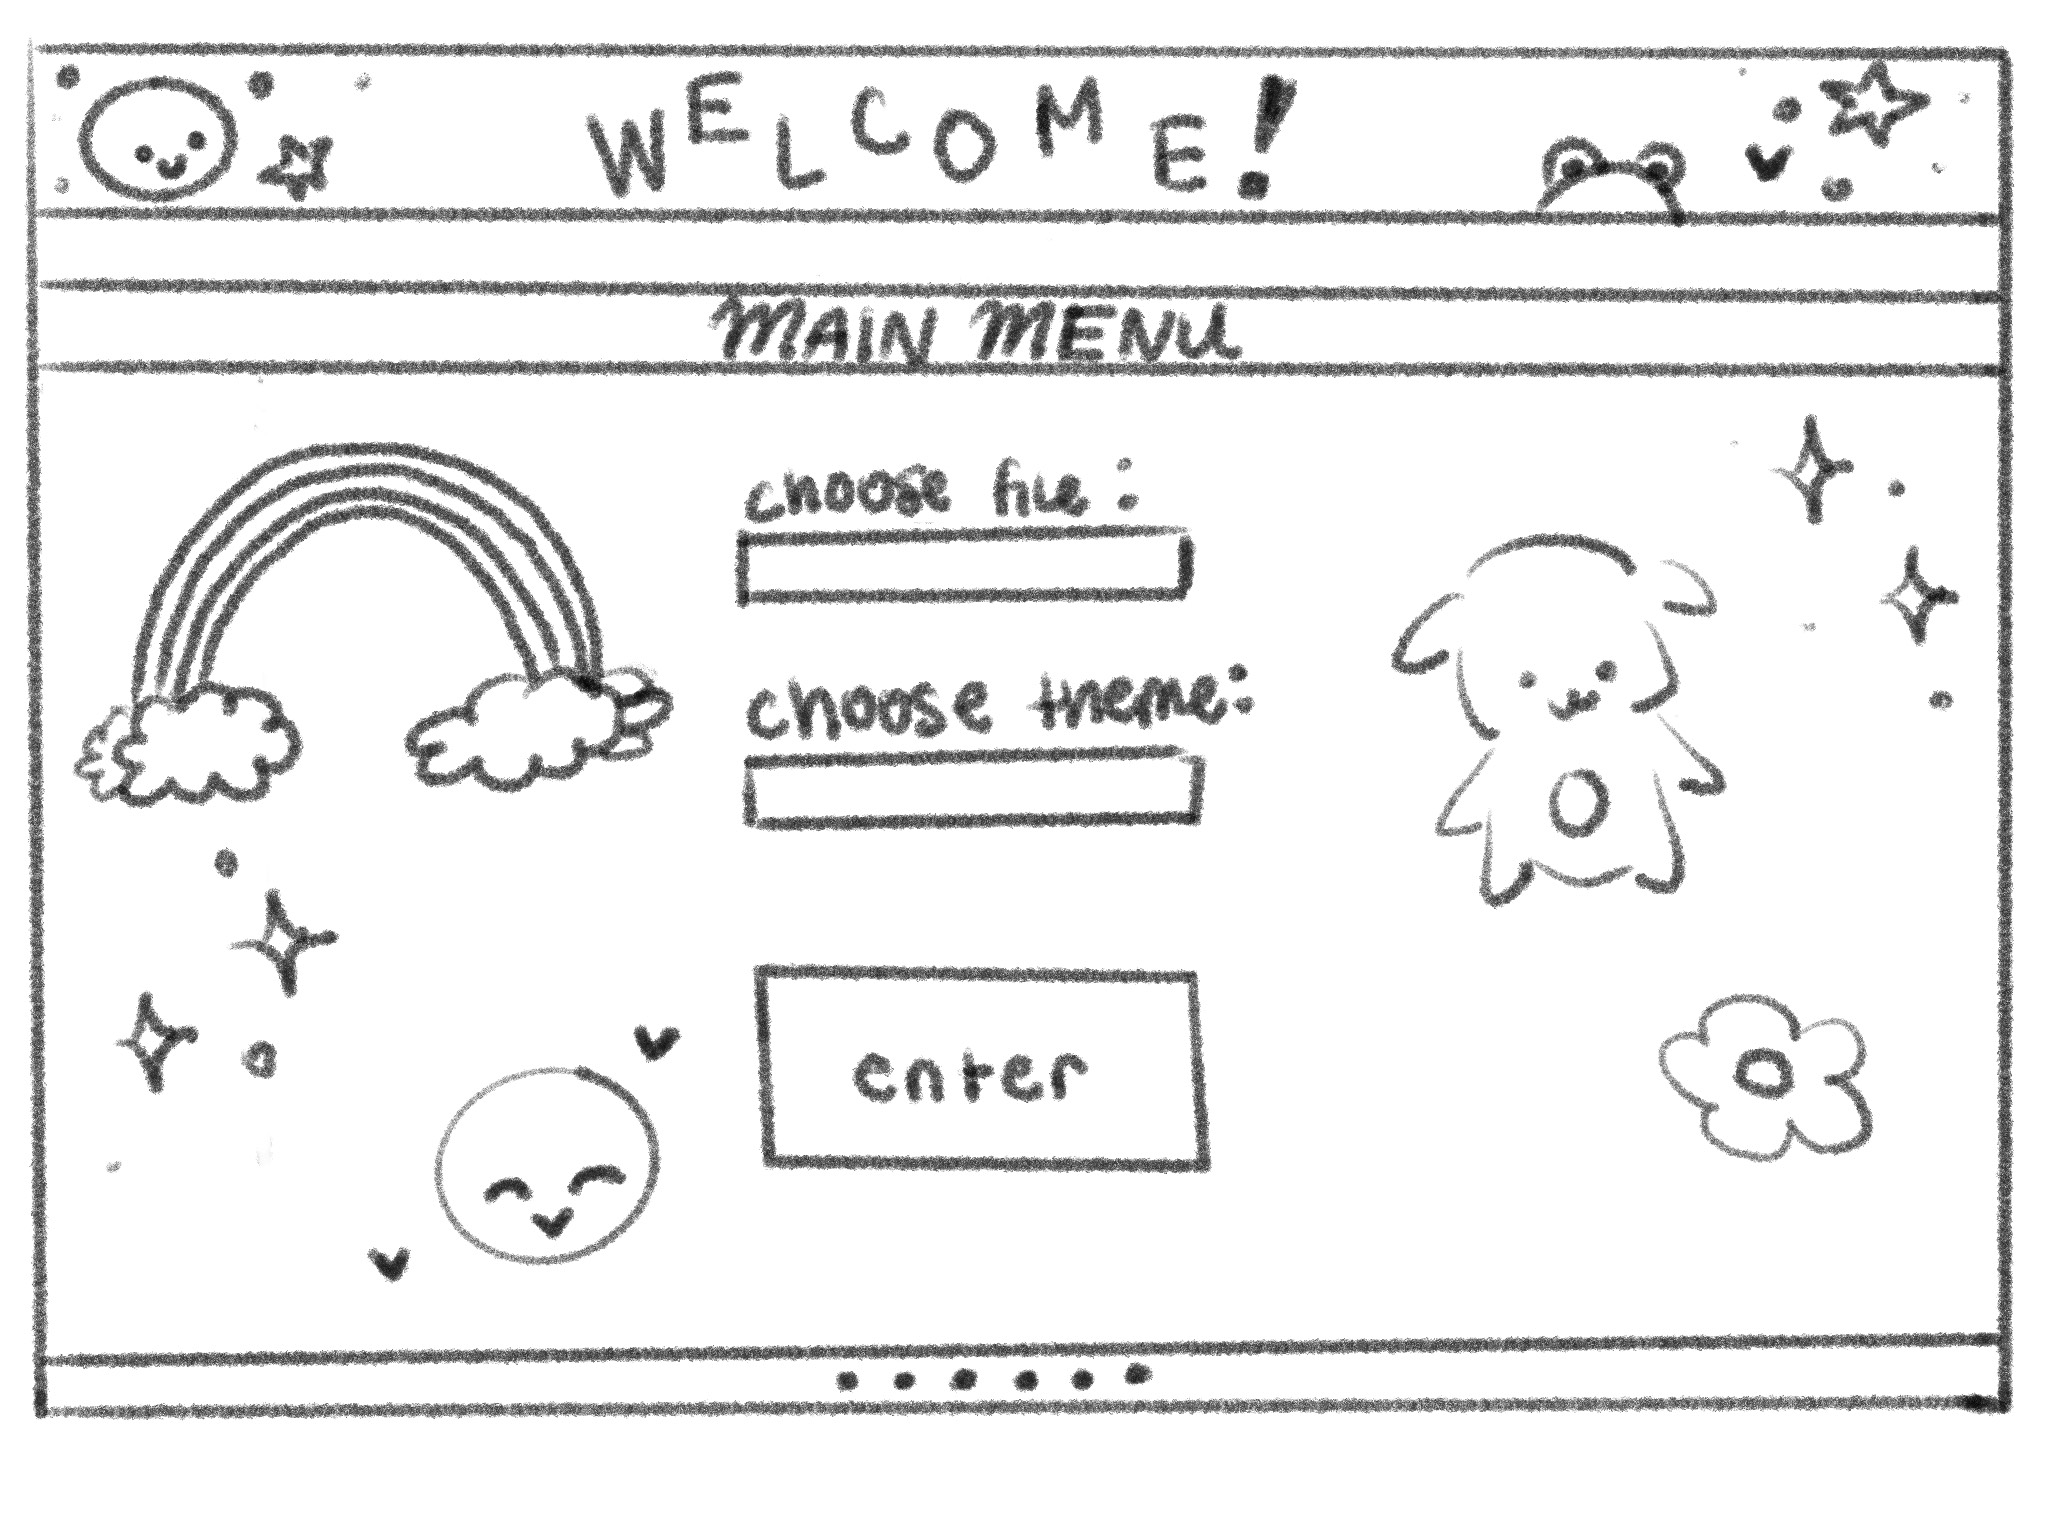 WELCOME!
MAIN MENU
choose file:
choose theme:
enter